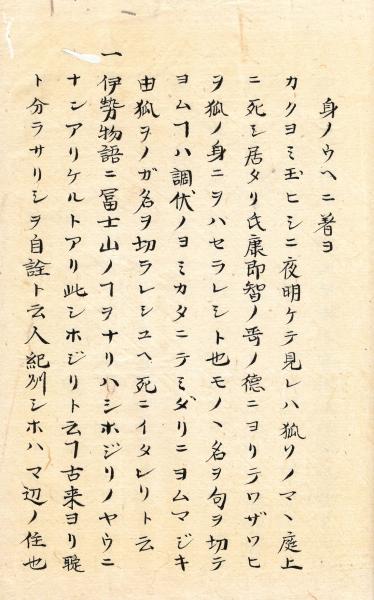 身ノウヘニ著ヨ
カクヨミ玉ヒシニ夜明ケテ見レハ狐ソノマヽ庭上
ニ死シ居タリ氏康即智ノ哥ノ徳ニヨリテワザワヒ
ヲ狐ノ身ニヲハセラレシト也モノヽ名ヲ句ヲ切テ
ヨムヿハ調伏ノヨミカタニテミダリニヨムマジキ
由狐ヲノガ名ヲ切ラレシユヘ死ニイタレリト云
一伊勢物語ニ冨士山ノヿヲナリハシホジリノヤウニ
ナンアリケルトアリ此シホジリト云ヿ古来ヨリ聢
ト分ラサリシヲ自詮ト云人紀州シホハマ辺ノ住也